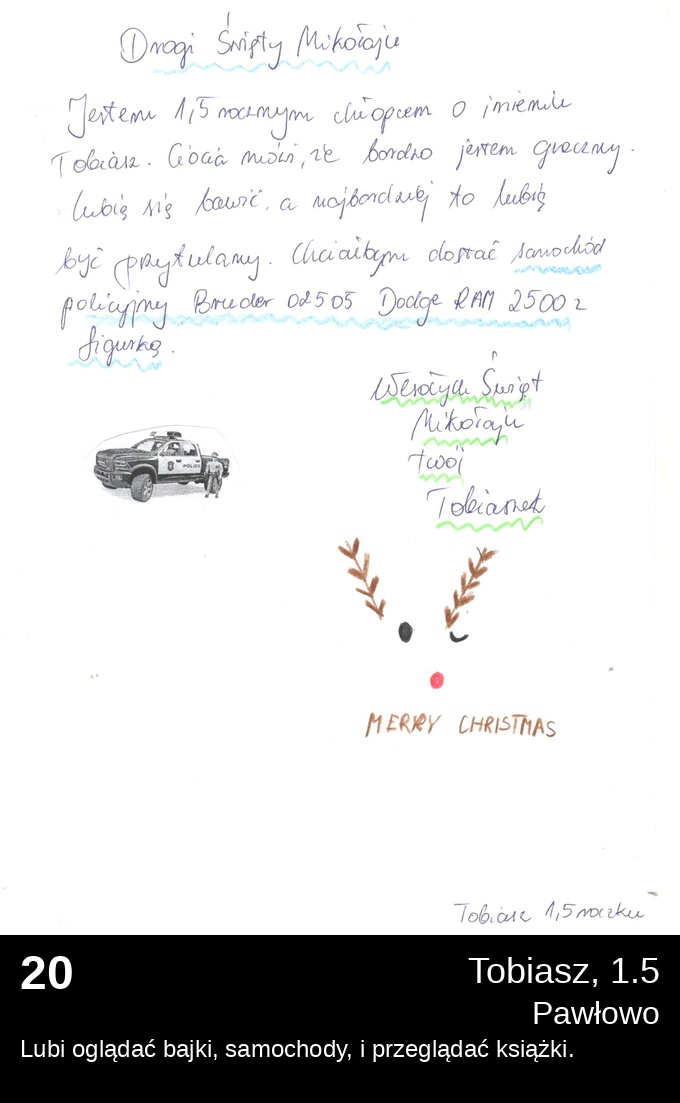 Drogi Święty Mikołaju
Jestem 1,5 rocznym chłopcem o imieniu
Tobiasz. Ciocia mówi, że bardzo jestem grzeczny.
Lubię się bawić, a najbardziej to lubię
być przytulany. Chciałbym dostać samochód
policyjny Bruder 02505 Dodge RAM 2500 z
figurką.
Wesołych Świąt
Mikołaju
twój
Tobiaszek
POLICE
MERRY CHRISTMAS
Tobiasz 1,5 roczku
20
Tobiasz, 1.5
Pawłowo
Lubi oglądać bajki, samochody, i przeglądać książki.